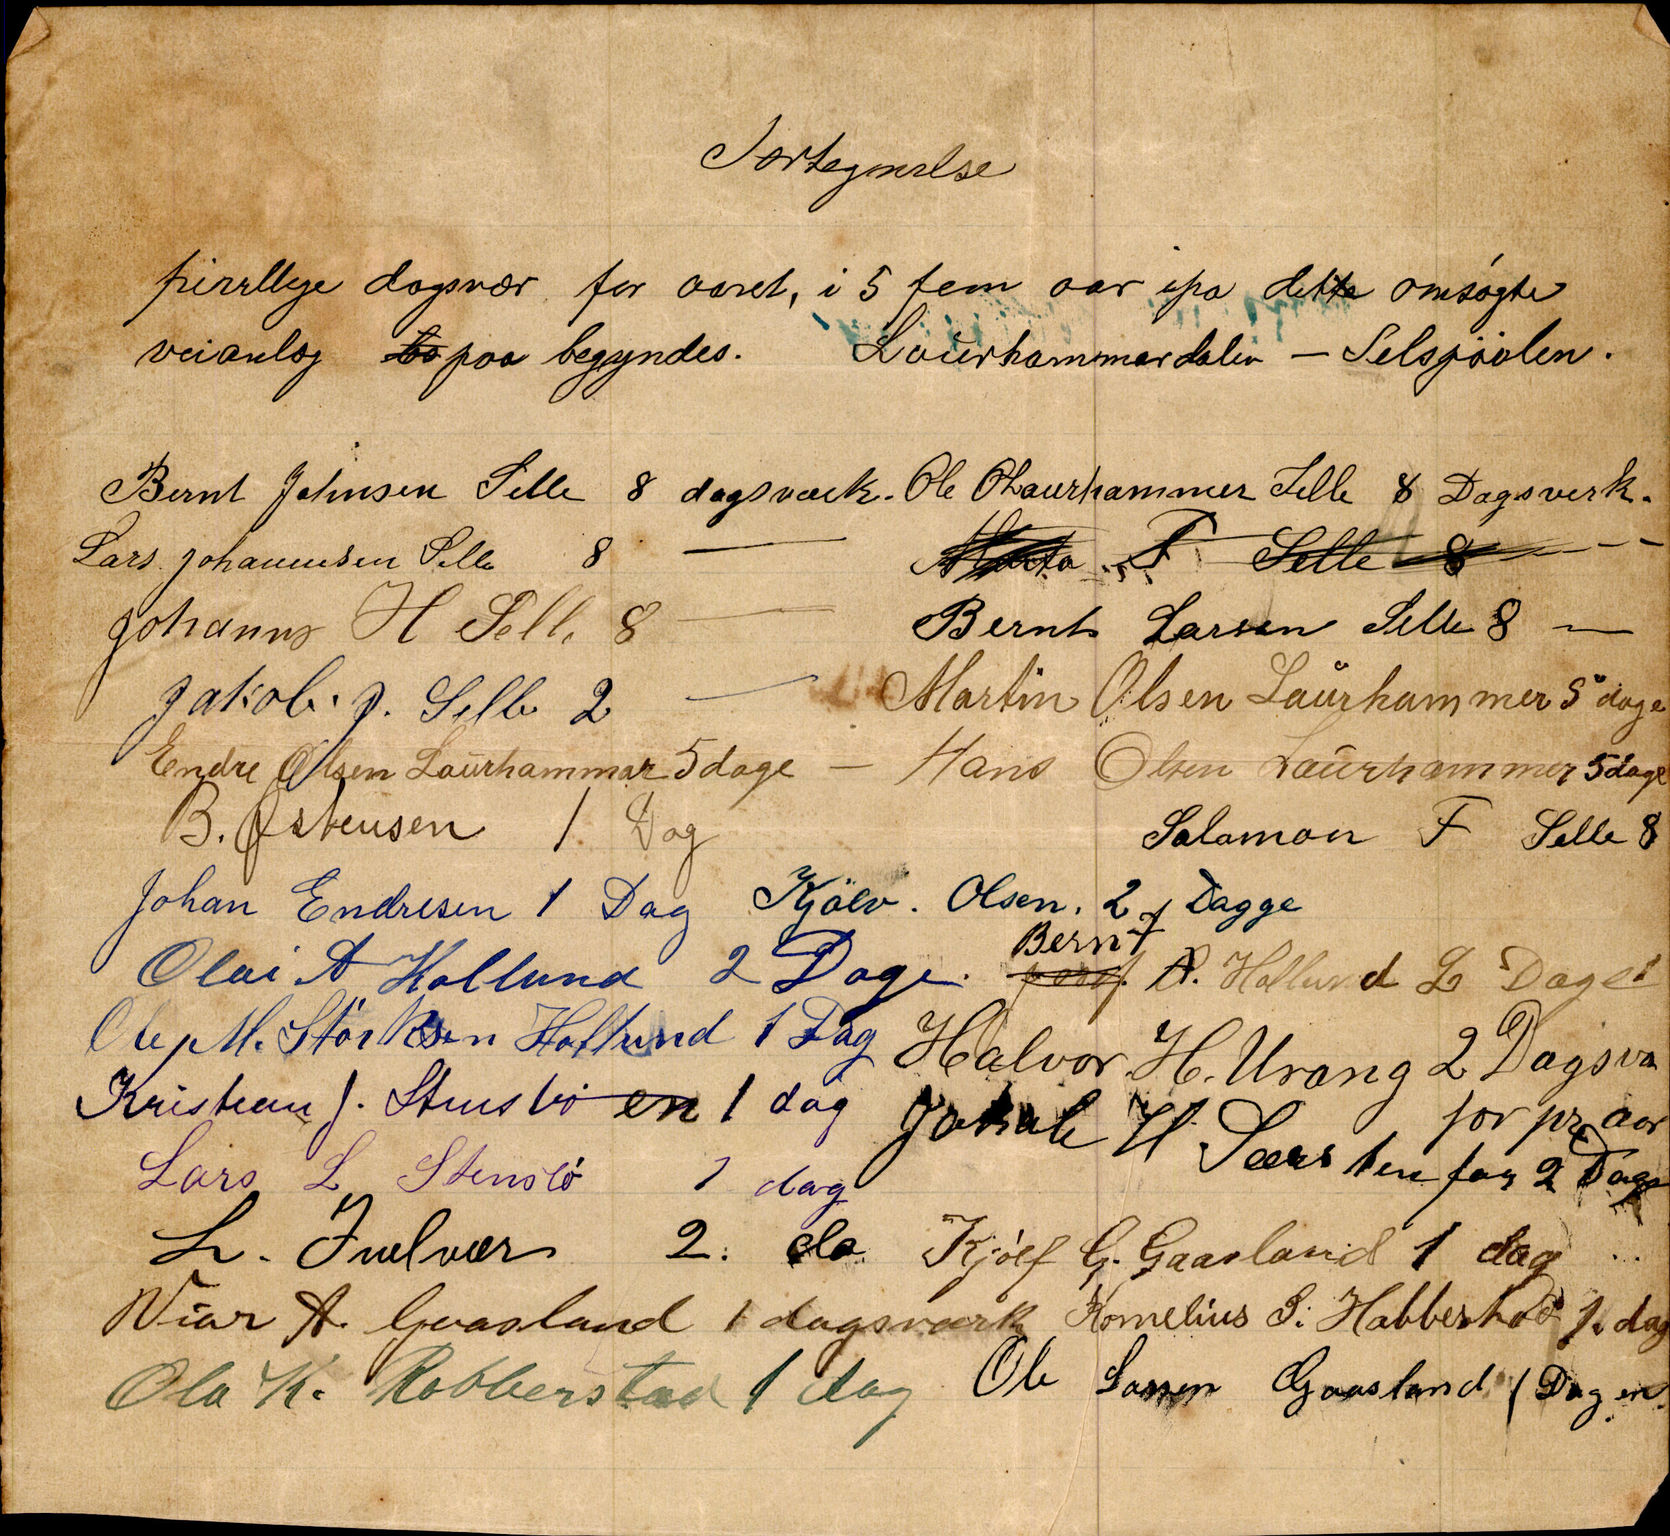 Fortegnelse
frivillige dagsvær for aaret, i 5 fem aar ipa dette omsøgte
veianlæg to paa begyndes. Laurhammerdalen — Selsjöolen.
Bernt Johnsen Selle 8 dagsværk. Ole O Laurhammer Selle 8 Dagsverk.
Lars Johannesen Selle 8 — Marta F Selle 8 — —
Johannes H Selle 8 — Bernt Larsen Selle 8 —
Jakob. J. Selle 2 — Martin Olsen Laurhammer 5 dage
Endre Olsen Laurhammar 5 dage — Hans Olsen Laurhammer 5 dage
B. Østensen 1 Dag Salamon F Selle 8
Johan Endresen 1 Dag Kjölv. Olsen. 2 Dagge
Olai A Hollund 2 Dage. Bernt A. Hollund 2 Dage
Ole M. Störksen Hollund 1 Dag Halvor H. Urang 2 Dagsva
for pr aar
Kristian J. Stensbö en 1 dag Jakob H for 2 Dage
Lars L Stensbö 1 dag
L. 2. do Kjólf G. Gaasland 1 dag
Wiar A. Gaasland 1 dagsværk Kornelius S. Habbestad 1. dag
Ola K. Robberstad 1 dag Ole Larsen Gaasland 1 Dag en.